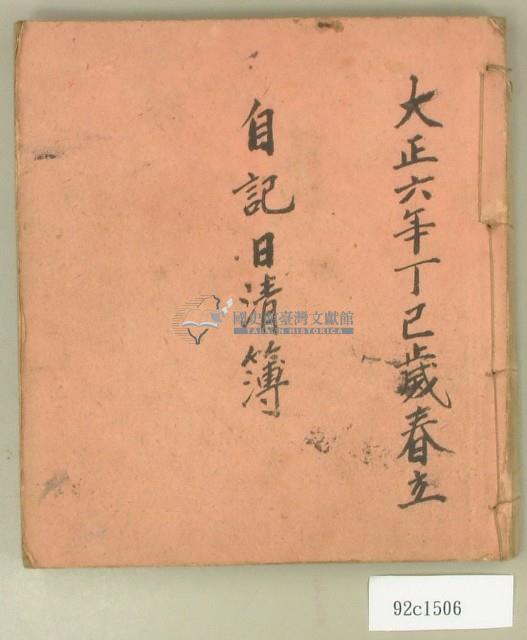 大正六年丁巳歲春立
自記日清簿
國史館臺灣文獻館
TAIWAN HISTORICA
92c1506